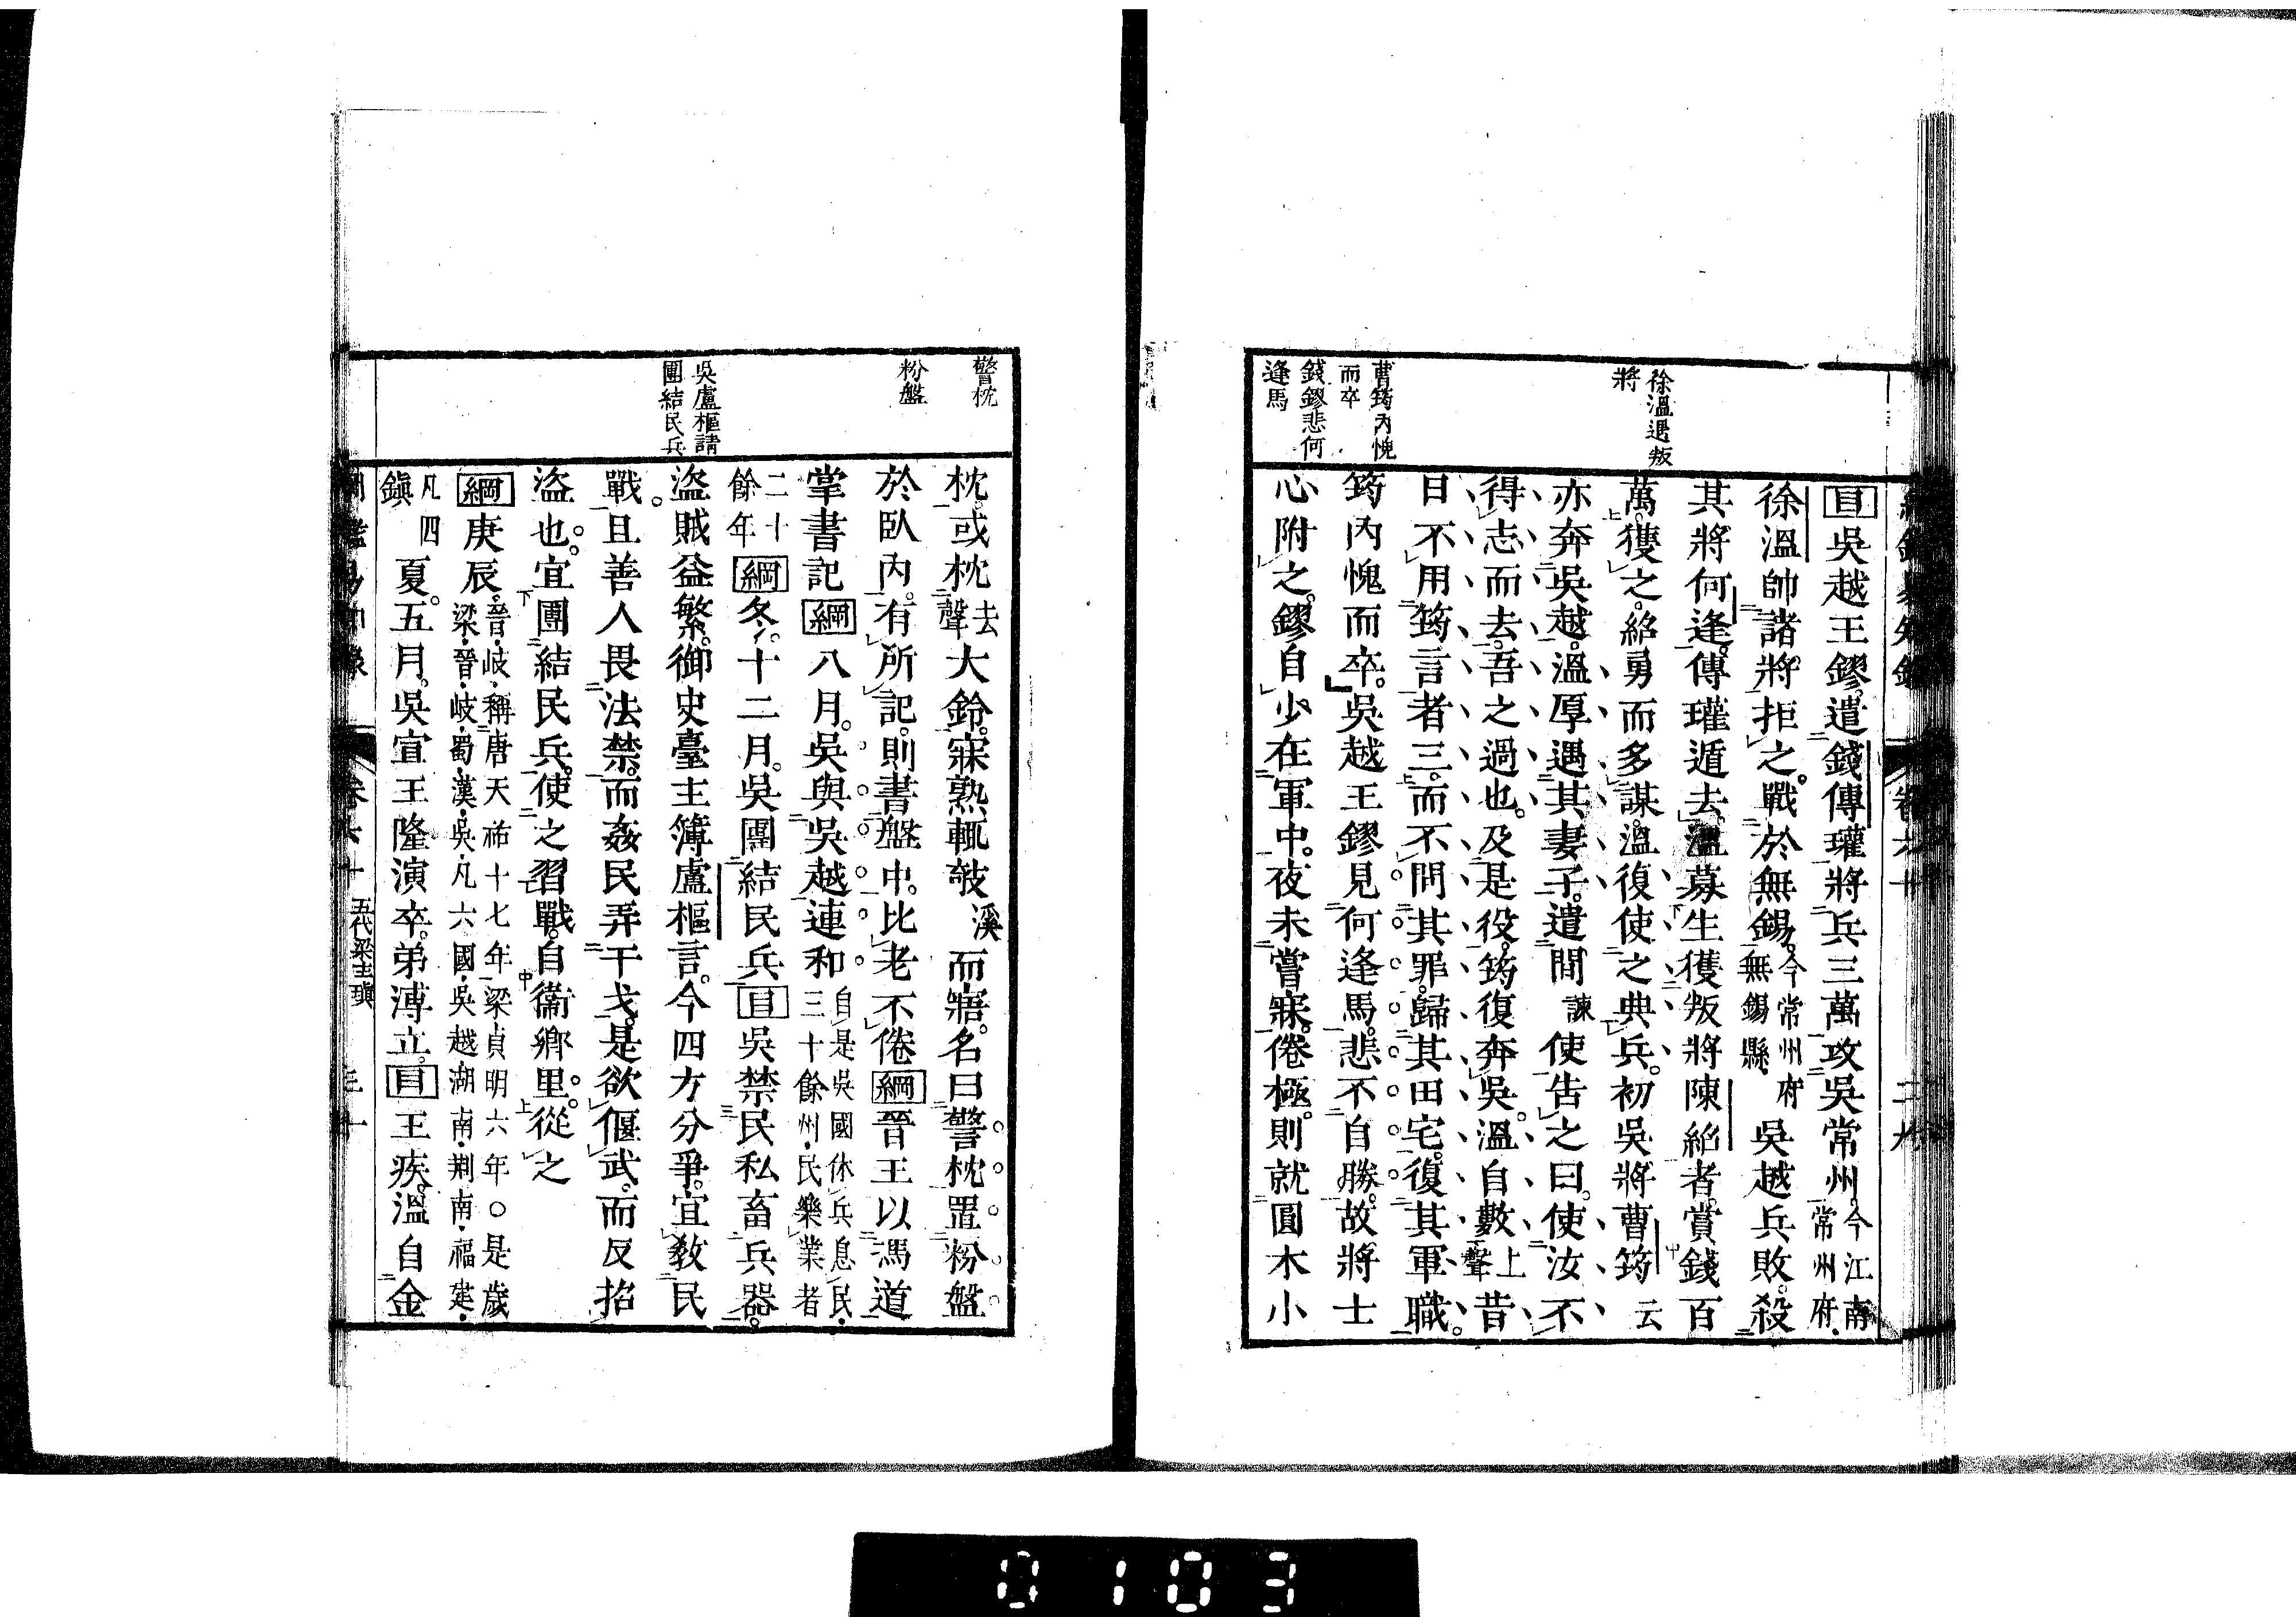 徐溫遇叛
將
曹筠內愧
而卒
錢鏐悲何
逢馬
目吳越王鏐遣錢傳瓘將兵三萬攻吳常州今江南常州府
徐溫帥諸將拒之戰於無錫今常州府無錫縣吳越兵敗殺
其將何逢傳瓘遁去溫募生獲叛將陳紹者賞錢百
萬獲之紹勇而多謀溫復使之典兵初吳將曹筠云
亦奔吳越溫厚遇其妻子遣間諫使告之曰使汝不
得志而去吾之過也及是役筠復奔吳溫自數上聲昔
日不用筠言者三而不問其罪歸其田宅復其軍職
筠內愧而卒吳越王鏐見何逢馬悲不自勝故將士
心附之鏐自少在軍中夜未嘗寐倦極則就圓木小
警枕
粉盤
吳盧樞請
團結民兵
枕或枕去聲大鈴寐熟輒攲溪而寤名曰警枕置粉盤
於臥內有所記則書盤中比老不倦綱晉王以馮道
掌書記綱八月吳與吳越連和自是吳國休兵息民三十餘州民樂業者
二十餘年綱冬十二月吳團結民兵目吳禁民私畜兵器
盜賊益繁御史臺主簿盧樞言今四方分爭宜教民
戰且善人畏法禁而姦民弄干戈是欲偃武而反招
盜也宜團結民兵使之習戰自衞鄉里從之
綱庚辰晉岐稱唐天祐十七年梁貞明六年○是歲梁晉岐蜀漢吳凡六國吳越湖南荆南福建
凡四鎮夏五月吳宣王隆演卒弟溥立目王疾溫自金
卷六十 五代梁主瑱